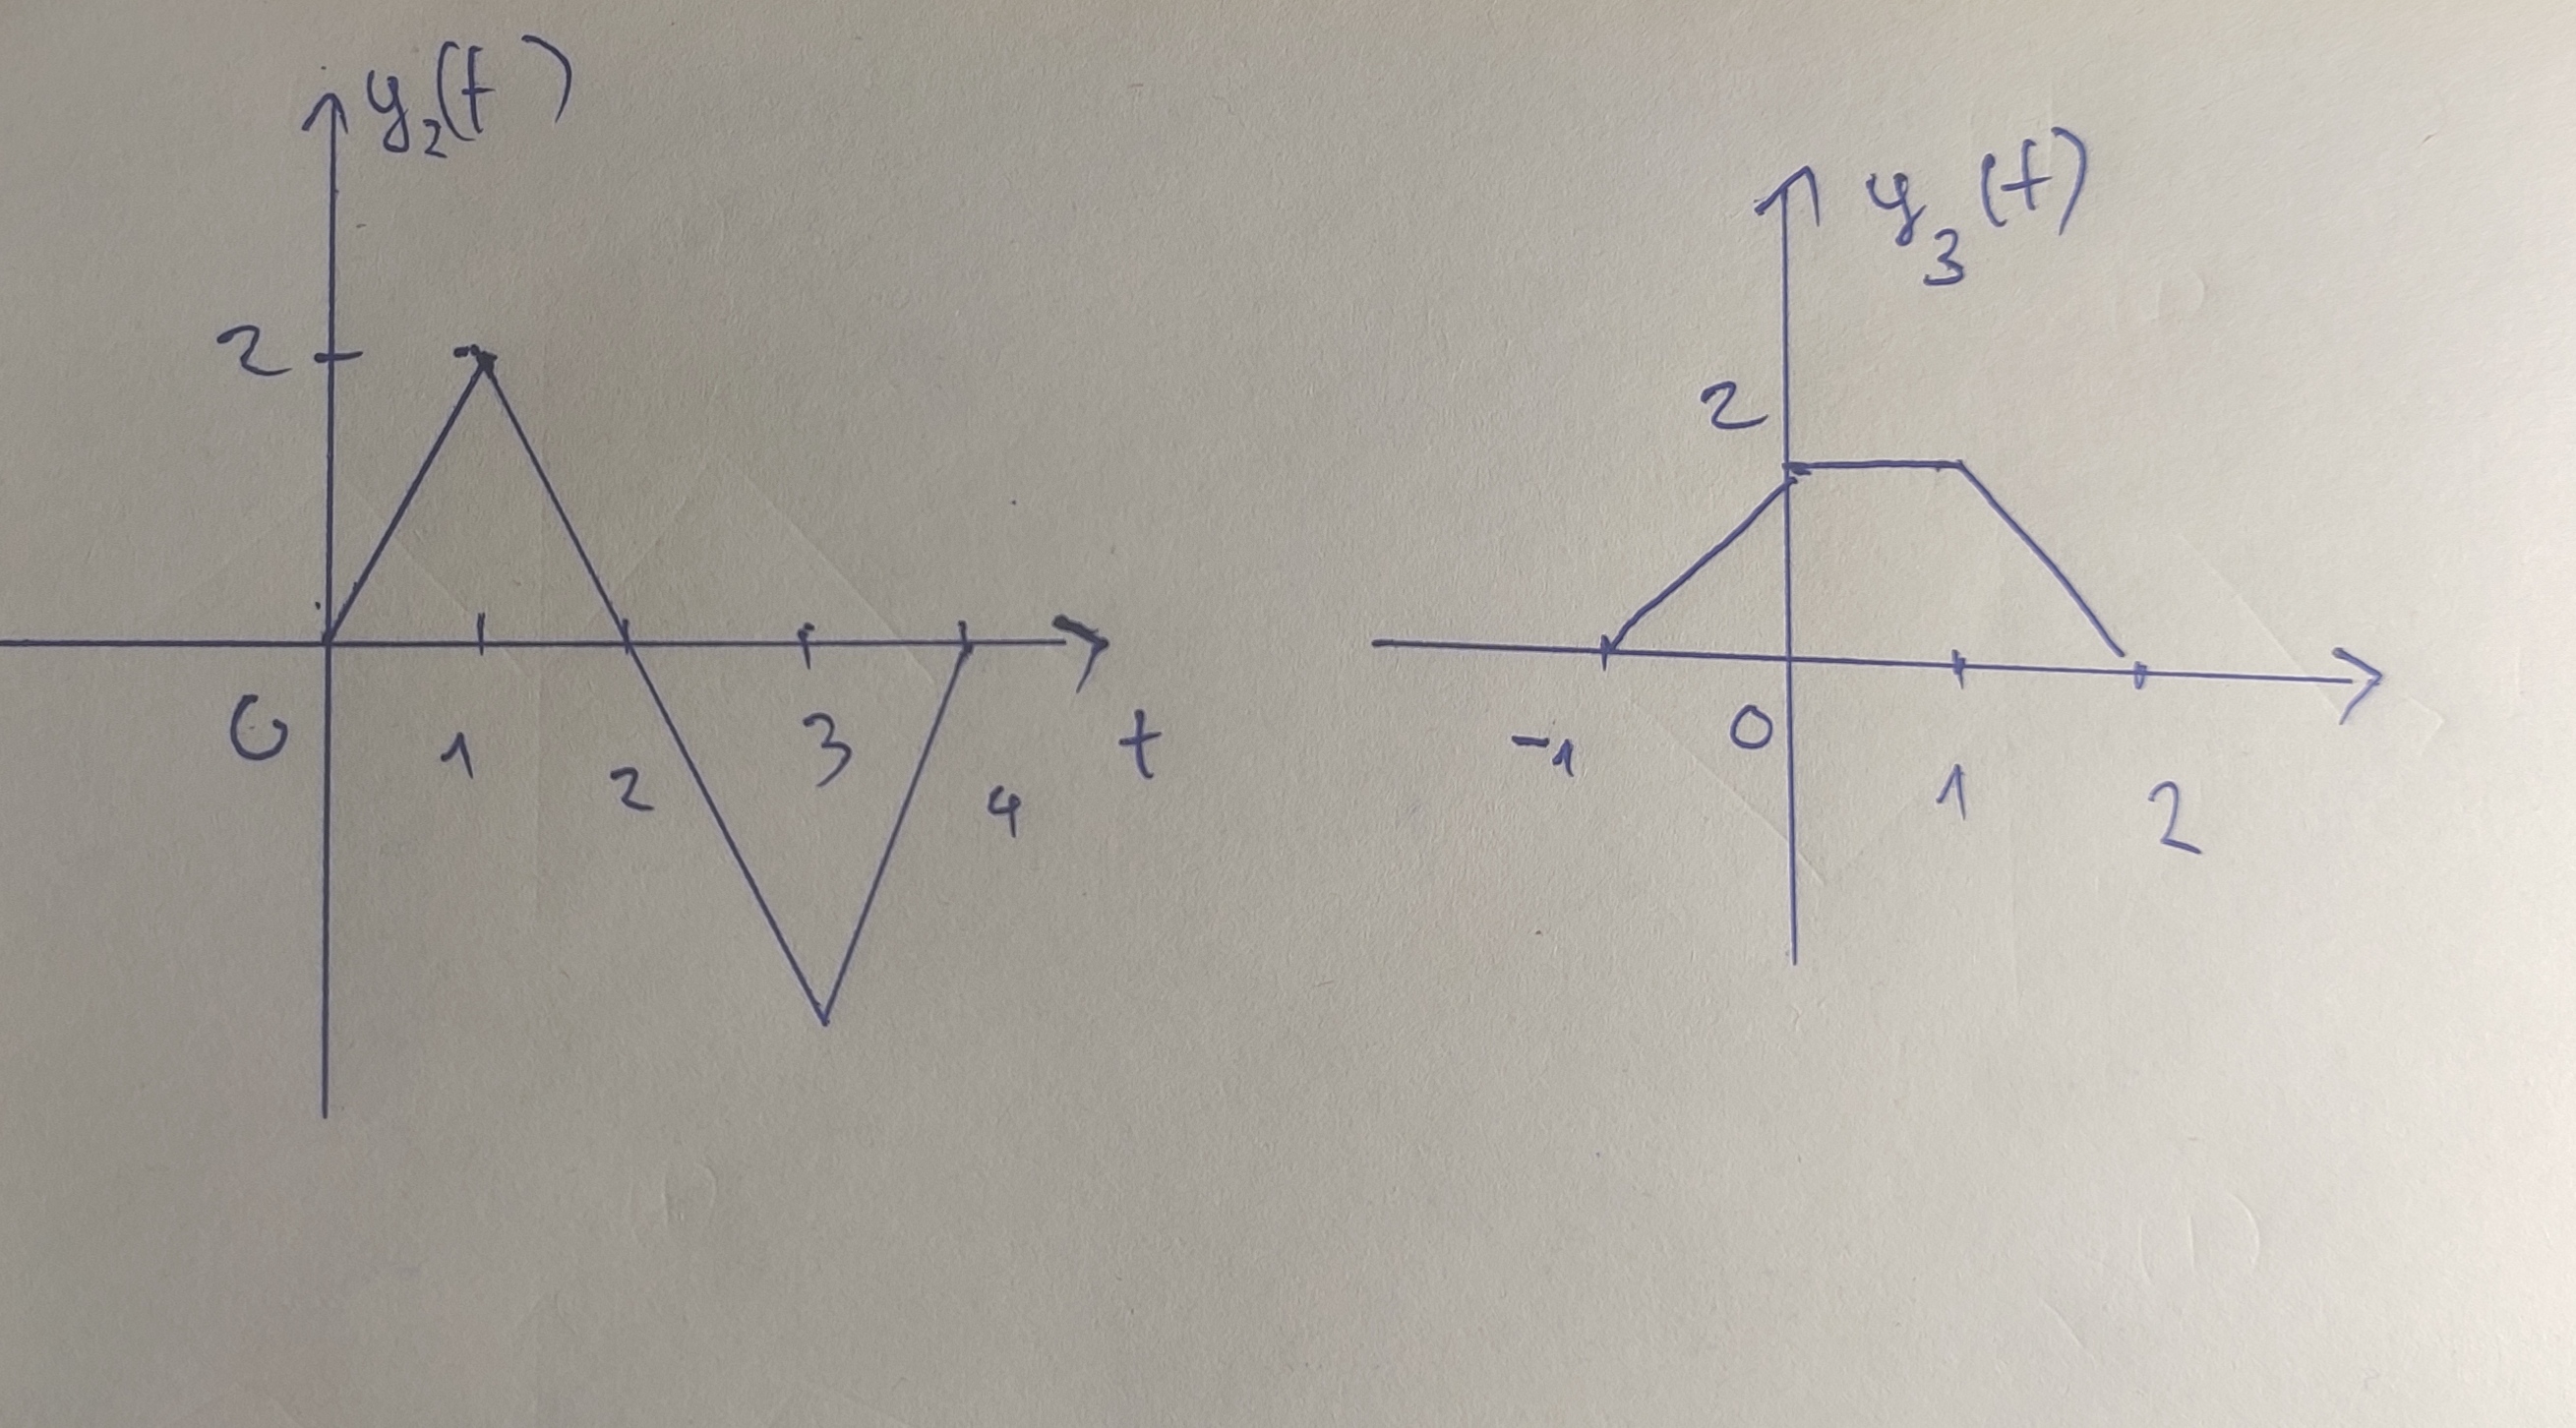 y₂(t)
2
0 1 2 3 4 t
y₃(t)
2
-1 0 1 2